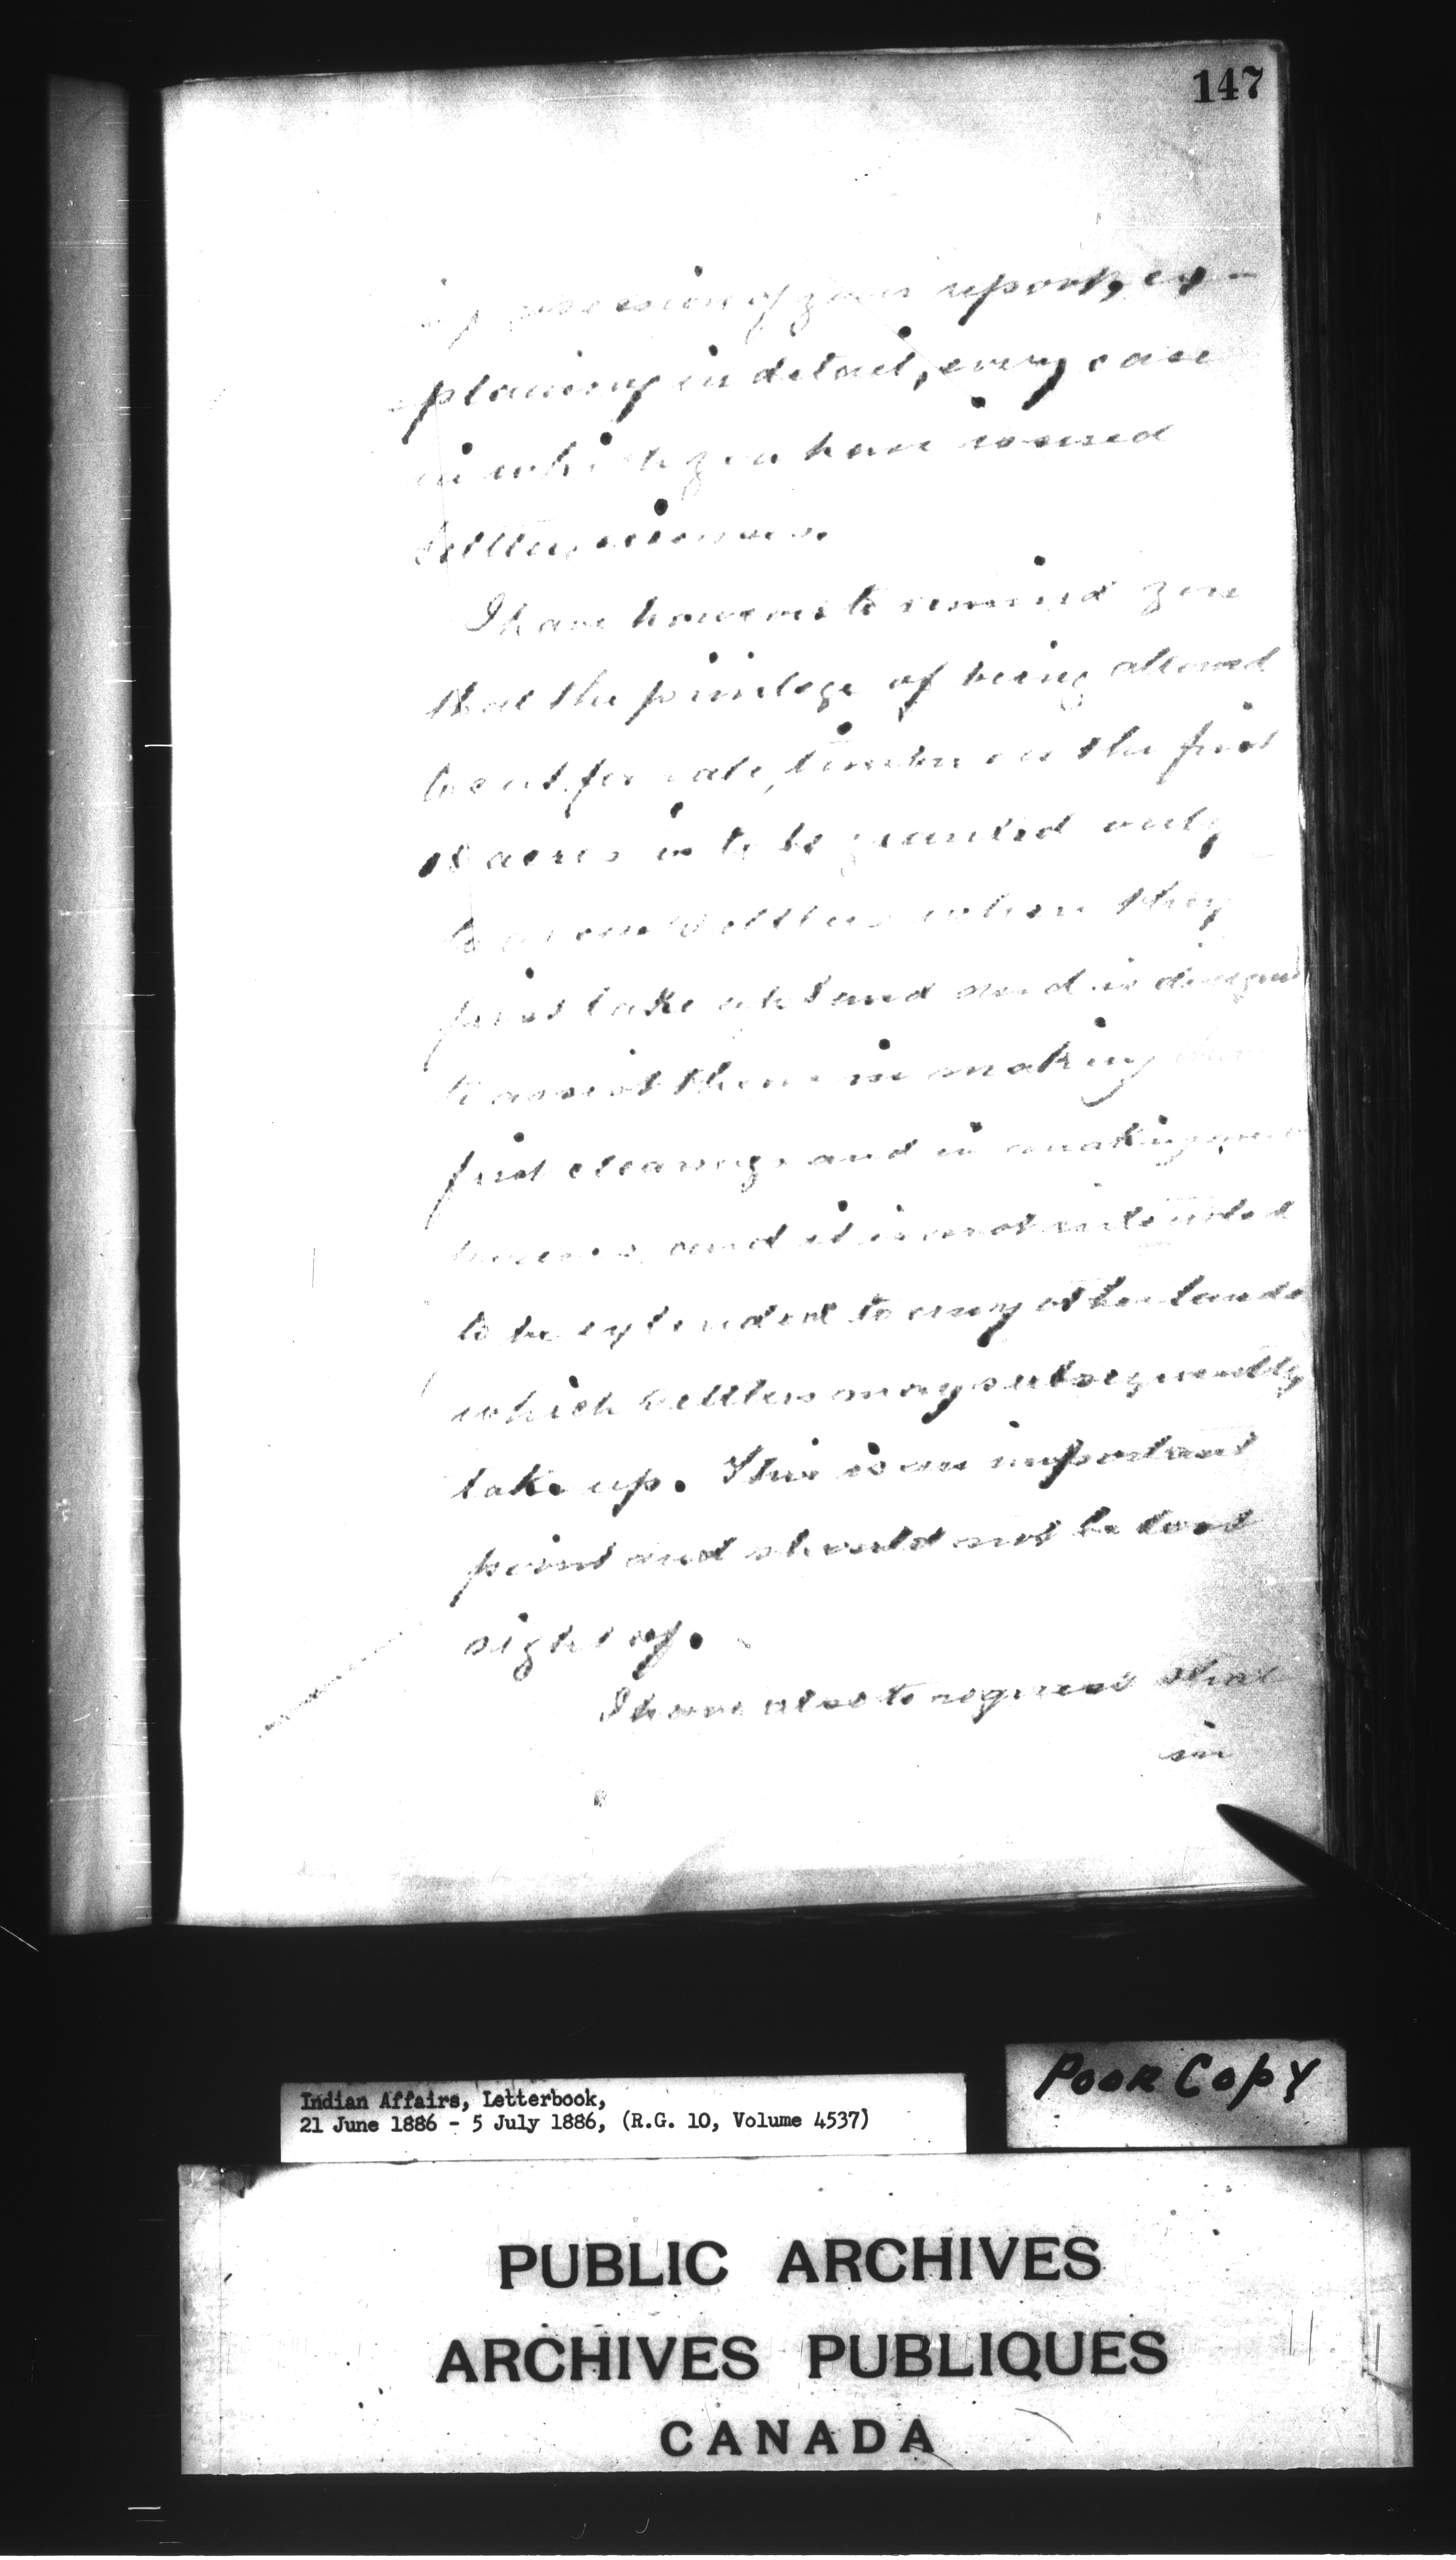 147
possession of your report, ex-
plaining in detail, every case
in which you have issued
settlers licenses.
I have however to remind you
that the privilege of being allowed
to cut for sale, timber on the first
acres is to be granted only
to settlers when they
first take up land and is designed
to assist them in making
first clearings and in making
houses and it is not intended
to be extended to any other lands
which settlers may subsequently
take up. This is an important
point and should not be lost
sight of.
I have also to request that
in
Poor Copy
Indian Affairs, Letterbook,
21 June 1886 - 5 July 1886, (R.G. 10, Volume 4537)
PUBLIC ARCHIVES
ARCHIVES PUBLIQUES
CANADA